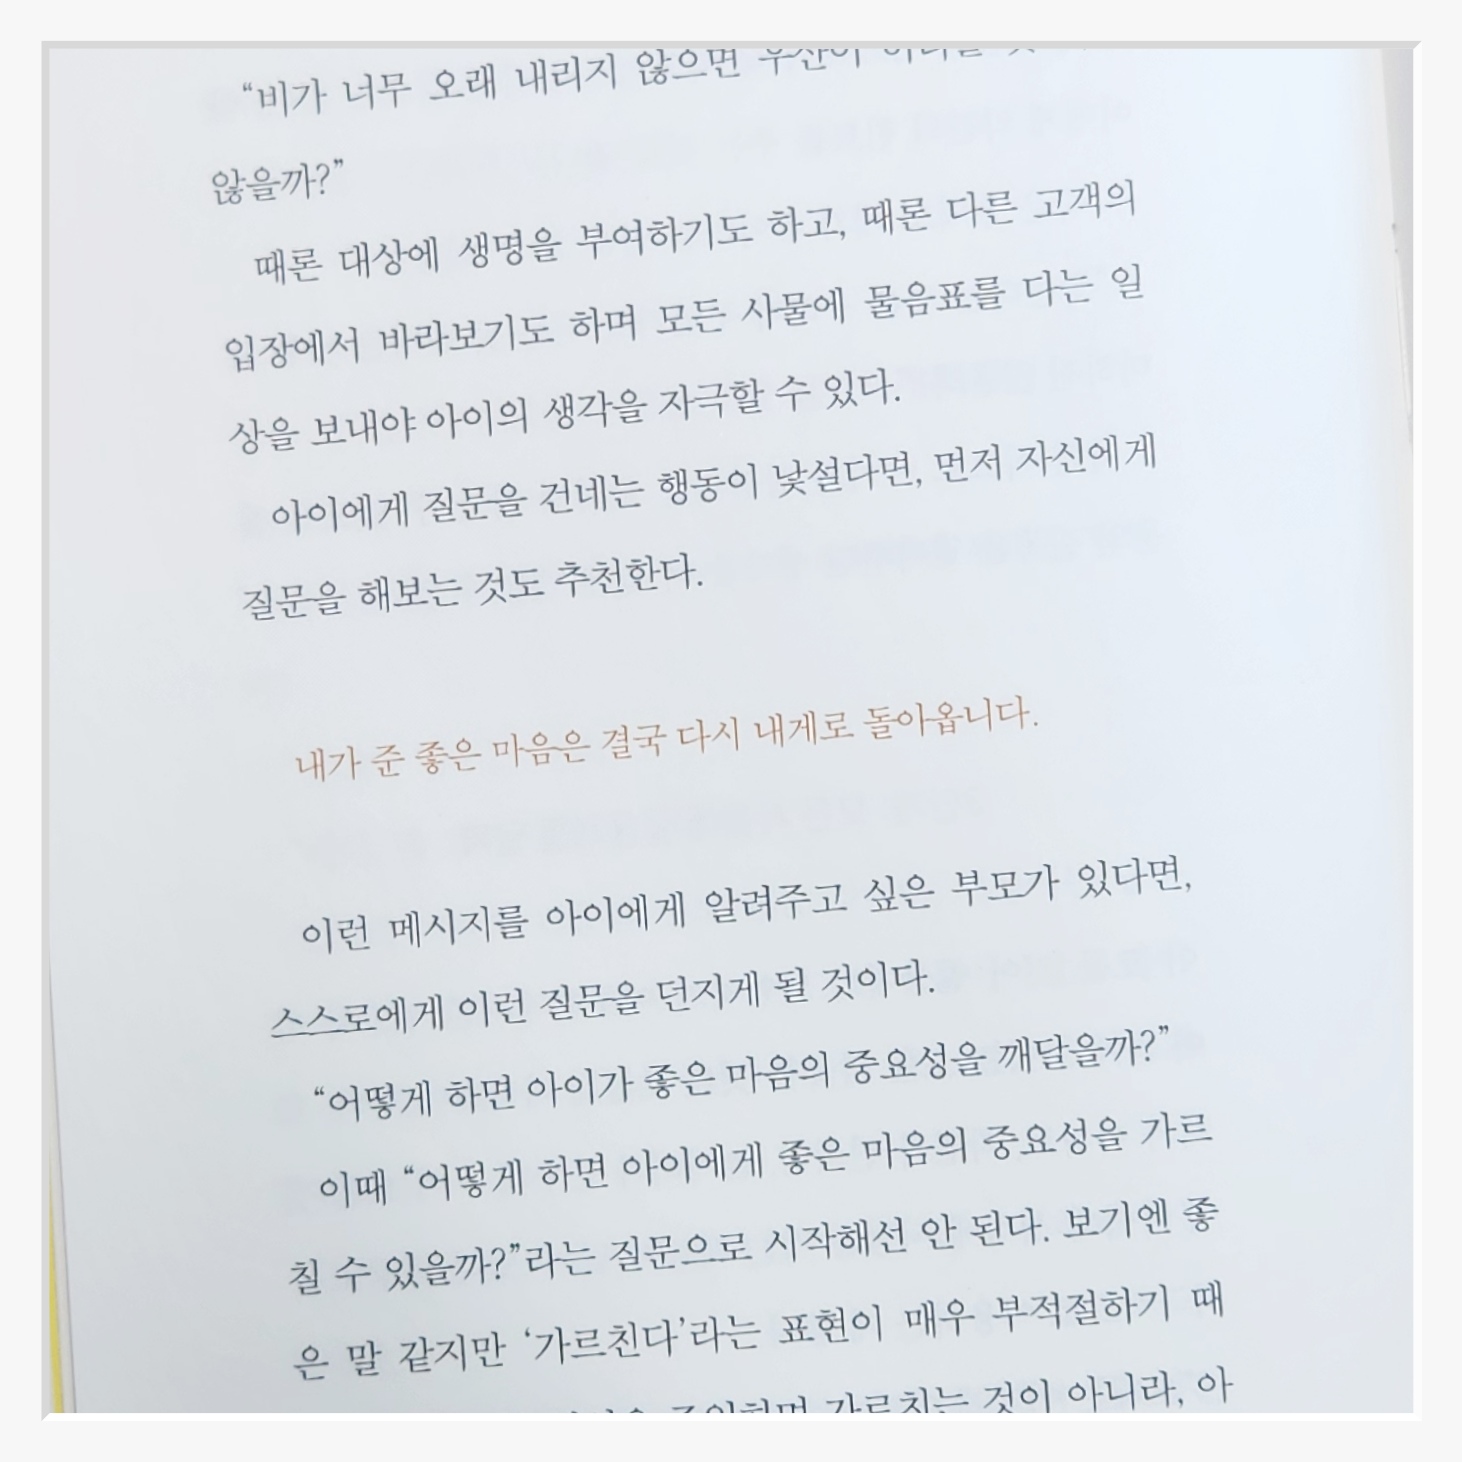 “비가 너무 오래 내리지 않으면 우산이
않을까?”
때론 대상에 생명을 부여하기도 하고, 때론 다른 고객의
입장에서 바라보기도 하며 모든 사물에 물음표를 다는 일
상을 보내야 아이의 생각을 자극할 수 있다.
아이에게 질문을 건네는 행동이 낯설다면, 먼저 자신에게
질문을 해보는 것도 추천한다.
내가 준 좋은 마음은 결국 다시 내게로 돌아옵니다.
이런 메시지를 아이에게 알려주고 싶은 부모가 있다면,
스스로에게 이런 질문을 던지게 될 것이다.
“어떻게 하면 아이가 좋은 마음의 중요성을 깨달을까?”
이때 “어떻게 하면 아이에게 좋은 마음의 중요성을 가르
칠 수 있을까?”라는 질문으로 시작해선 안 된다. 보기엔 좋
은 말 같지만 ‘가르친다’라는 표현이 매우 부적절하기 때
가르치는 것이 아니라, 아